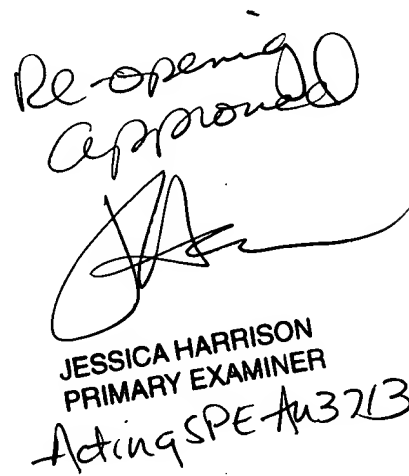 Re-opening
approved
JESSICA HARRISON
PRIMARY EXAMINER
Acting SPE Au 3713